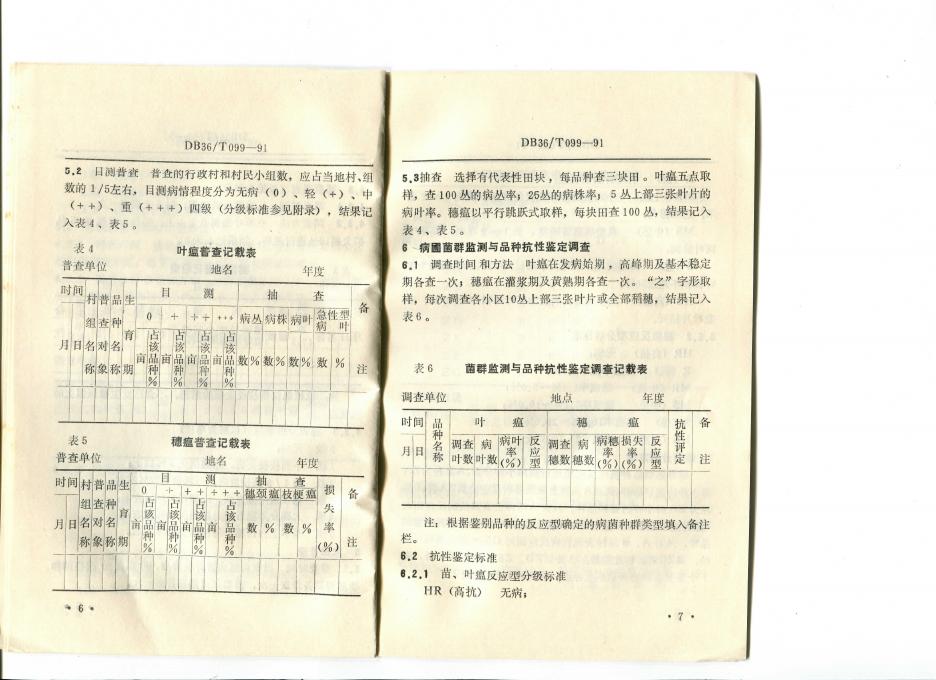 DB36/T099—91
5.2 目测普查 普查的行政村和村民小组数，应占当地村、组
数的1/5左右，目测病情程度分为无病（0）、轻（+）、中
（++）、重（+++）四级（分级标准参见附录），结果记
入表4、表5。
表4 叶瘟普查记载表
普查单位 地名 年度
时间 村组名称 普查对象 品种名称 生育期 目测 抽查 备注
月 日 0 + ++ +++ 病丛 病株 病叶 急性型病叶
亩 占该品种% 亩 占该品种% 亩 占该品种% 亩 占该品种% 数 % 数 % 数 % 数 %
表5 穗瘟普查记载表
普查单位 地名 年度
时间 村组名称 普查对象 品种名称 生育期 目测 抽查 损失率(%) 备注
月 日 0 + ++ +++ 穗颈瘟 枝梗瘟
亩 占该品种% 亩 占该品种% 亩 占该品种% 亩 占该品种% 数 % 数 %
• 6 •
DB36/T099—91
5.3抽查 选择有代表性田块，每品种查三块田。叶瘟五点取
样，查100丛的病丛率；25丛的病株率；5丛上部三张叶片的
病叶率。穗瘟以平行跳跃式取样，每块田查100丛，结果记入
表4、表5。
6 病圃菌群监测与品种抗性鉴定调查
6.1 调查时间和方法 叶瘟在发病始期，高峰期及基本稳定
期各查一次；穗瘟在灌浆期及黄熟期各查一次。“之”字形取
样，每次调查各小区10丛上部三张叶片或全部稻穗，结果记入
表6。
表6 菌群监测与品种抗性鉴定调查记载表
调查单位 地点 年度
时间 品种名称 叶瘟 穗瘟 抗性评定 备注
月 日 调查叶数 病叶数 病叶率(%) 反应型 调查穗数 病穗数 病穗率(%) 损失率(%) 反应型
注：根据鉴别品种的反应型确定的病菌种群类型填入备注
栏。
6.2 抗性鉴定标准
6.2.1 苗、叶瘟反应型分级标准
HR（高抗） 无病；
• 7 •